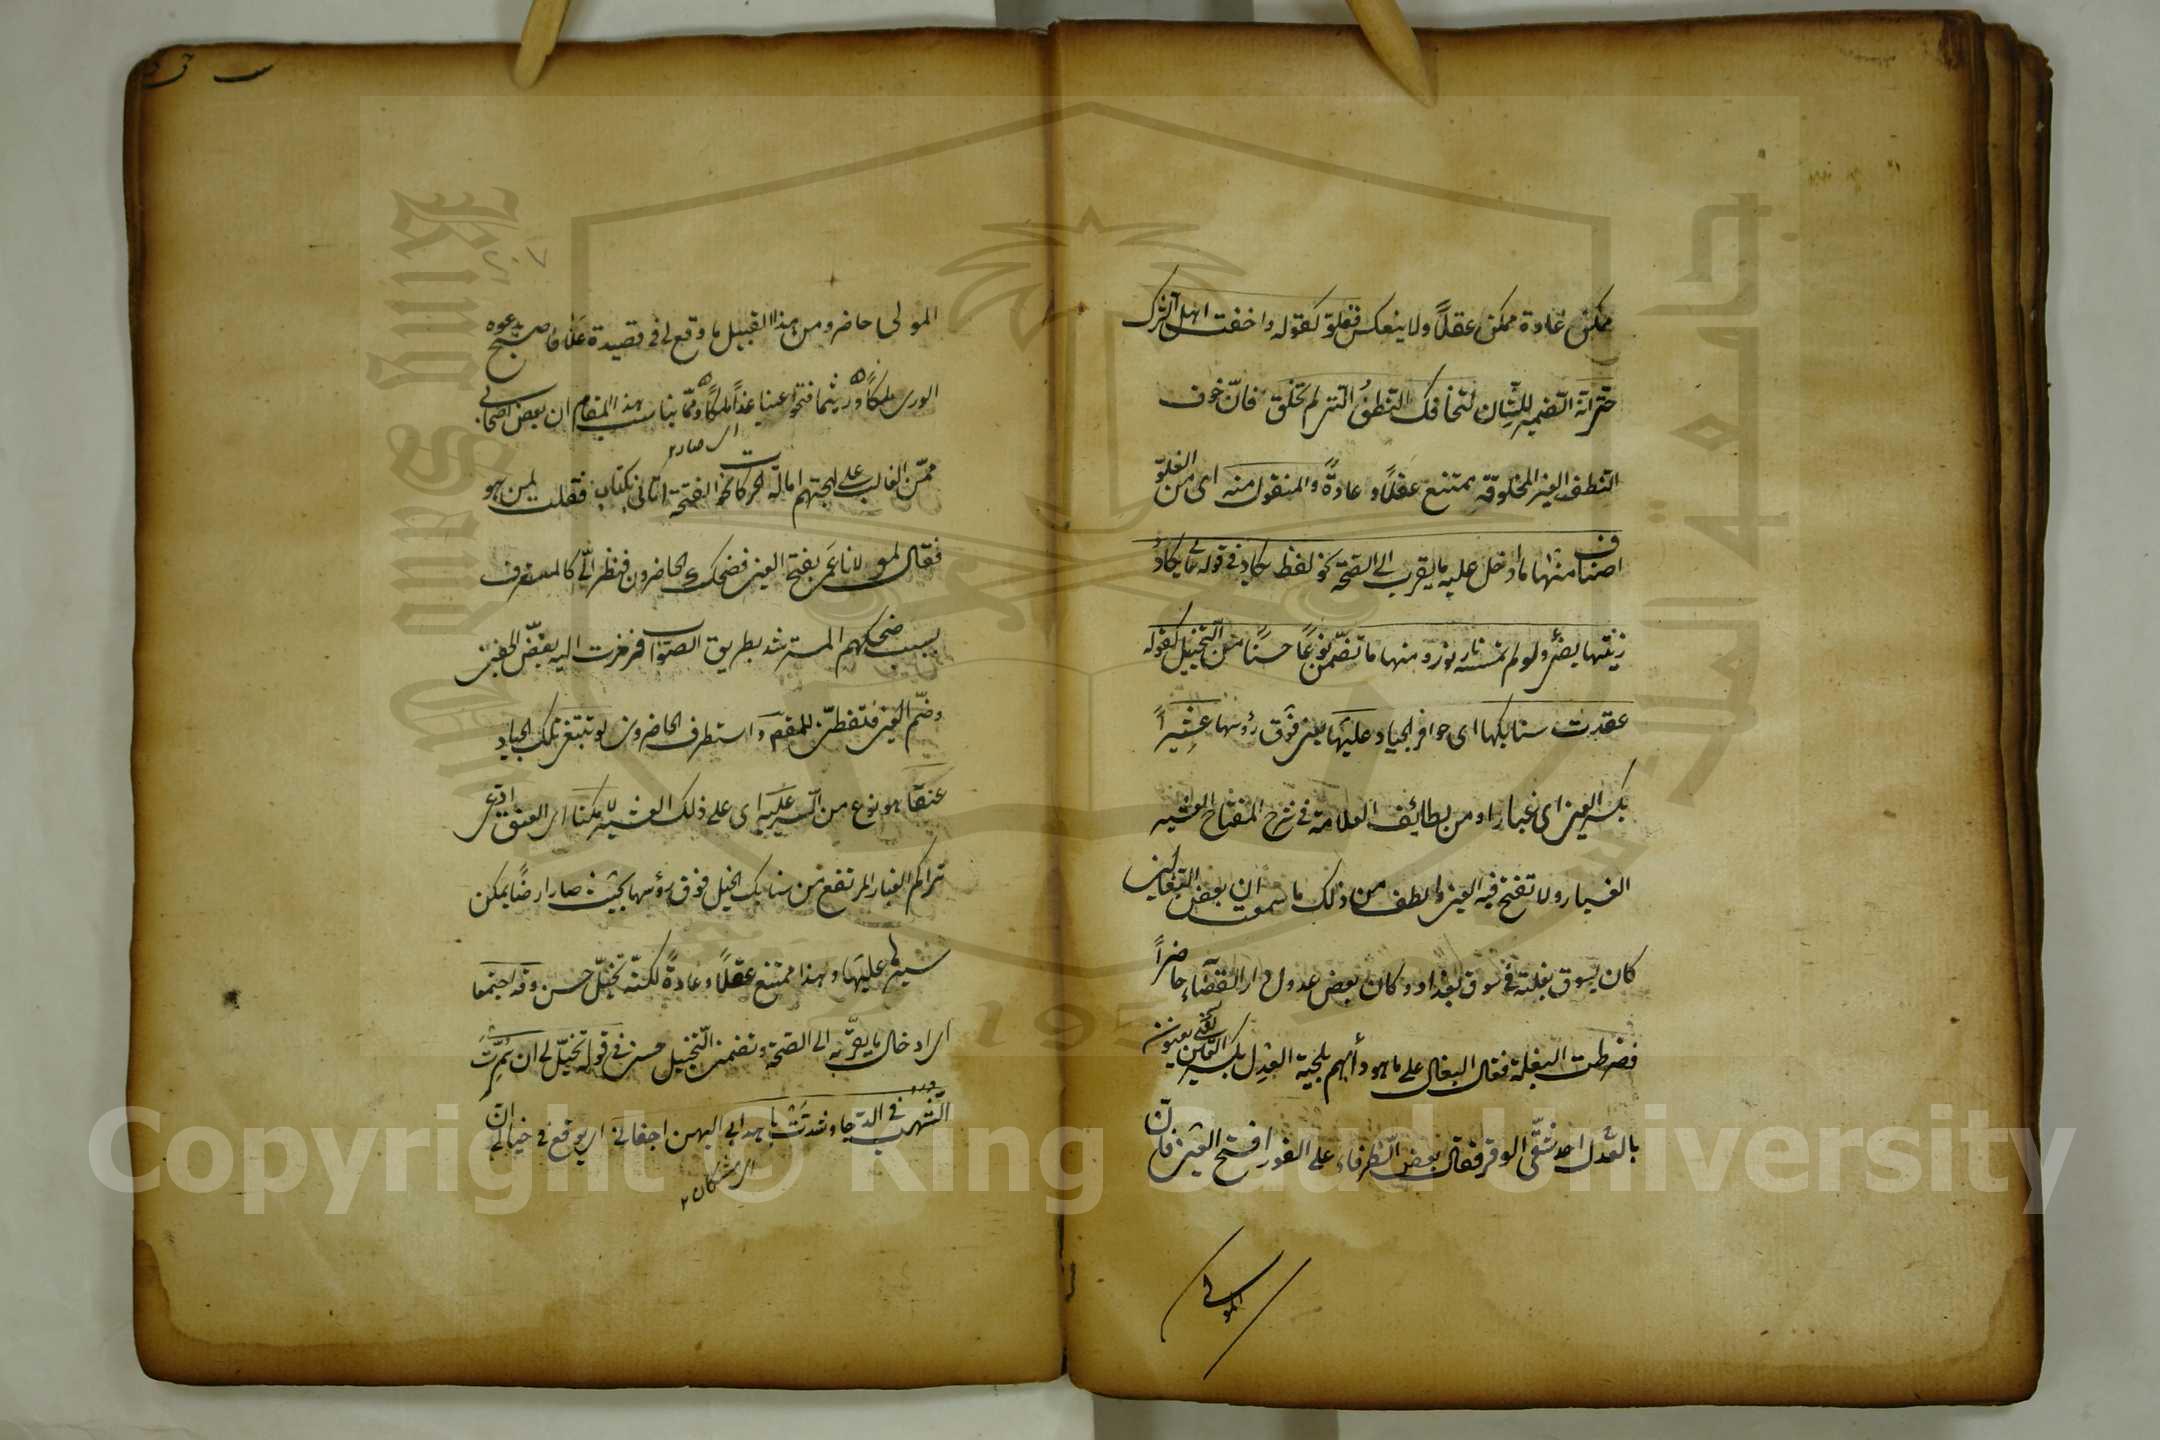 ممكن عادة ممكن عقلاً ولا ينعكس فغلوّ كقوله واخفت اهل الشرك
حتى انه الضمير للشان لتخافك النطف التى لم تخلق فانّ خوف
النطف الغير المخلوقة ممتنع عقلاً وعادةً والمقبول منه اى من الغلوّ
اصناف منها ما ادخل عليه ما يقرب الى الصحة نحو لفظ يكاد فى قوله تعالى يكاد
زيتها يضئ ولو لم تمسسه نار نور ومنها ما تضمّن نوعًا حسنًا من التخييل كقوله
عقدت سنابكها اى حوافر الجياد عليها يعنى فوق رؤسها عِثْيَرًا
بكسر العين اى غبارا ومن لطائف العلامة فى شرح المفتاح العثير
الغبار ولا تفتح فيه العين والطف من ذلك ما سمعت ان بعض البغالين
كان يسوق بغلته فى سوق بغداد وكان بعض عدول دار القضاء حاضراً
فضرطت البغلة فقال البغال على ما هو دأبهم بلحية العِدل بكسر العين يعنون
بالعدل احد شقّى الوقر فقال بعض الظرفاء على الفور افتح العين فانّ
المولى
المولى حاضر ومن هذا القبيل ما وقع لى فى قصيدة علا فاصبح يدعوه
الورى ملكاً وريثما فتحوا عينا غدا ملكاً ومما يناسب هذا المقام ان بعض اصحابى
اى صار ٢
ممّن الغالب على لهجتهم امالة الحركات نحو الفتحة اتانى بكتاب فقلت لمن هو
فقال لمولانا عَمر بفتح العين فضحك الحاضرون فنظر الىّ كالمتعرف
بسبب ضحكهم المسترشد بطريق الصواب فرمزت اليه بغضّ الجفن
وضمّ العين فتفطّن للمقصود واستظرف الحاضرون لو تبتغى تلك الجياد
عنقًا هو نوع من السير عليه اى على ذلك العثير لامكنا اى العنق ادعى
تراكم الغبار المرتفع من سنابك الخيل فوق رؤسها بحيث صار ارضًا يمكن
سيرها عليها وهذا ممتنع عقلاً وعادةً لكنّه تخيّل حسن وقد اجتمعا
اى ادخال ما يقرّبه الى الصحة وتضمن التخييل حسن فى قوله يخيّل لى ان سُمِّرَتْ
الشهب فى الدجا وشدّت باهدابى اليهن اجفانى اى يوقع فى خيالى ان